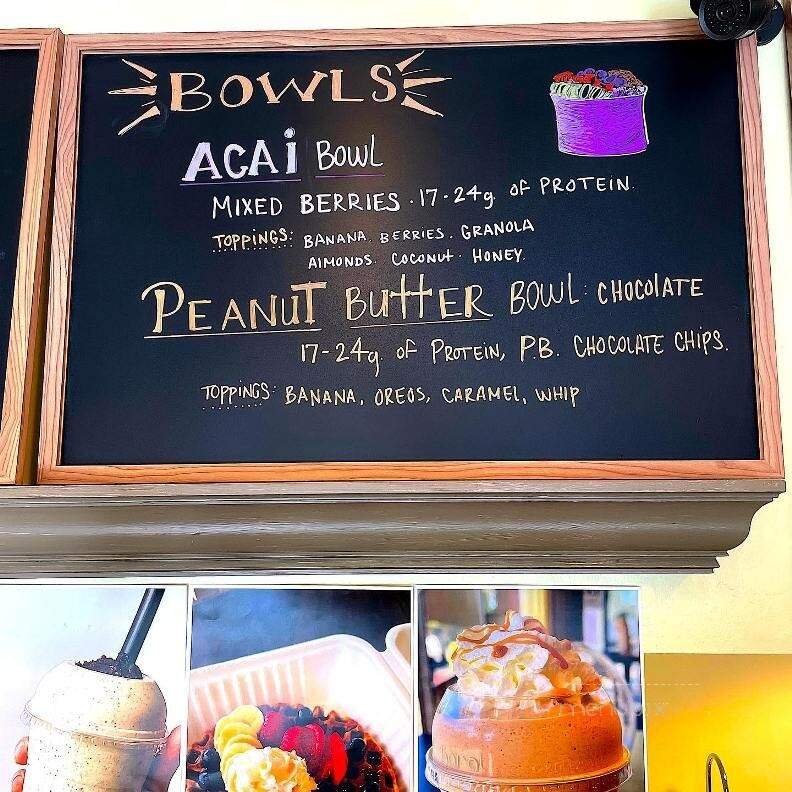 BOWLS
ACAi BOWL
MIXED BERRIES · 17-24g OF PROTEIN.
TOPPINGS: BANANA. BERRIES. GRANOLA
AIMONDS. COCONUT · HONEY.
PEANUT BUTTER BOWL: CHOCOLATE
17-24g. OF PROTEIN, P.B. CHOCOLATE CHIPS.
TOPPINGS: BANANA, OREOS, CARAMEL, WHIP